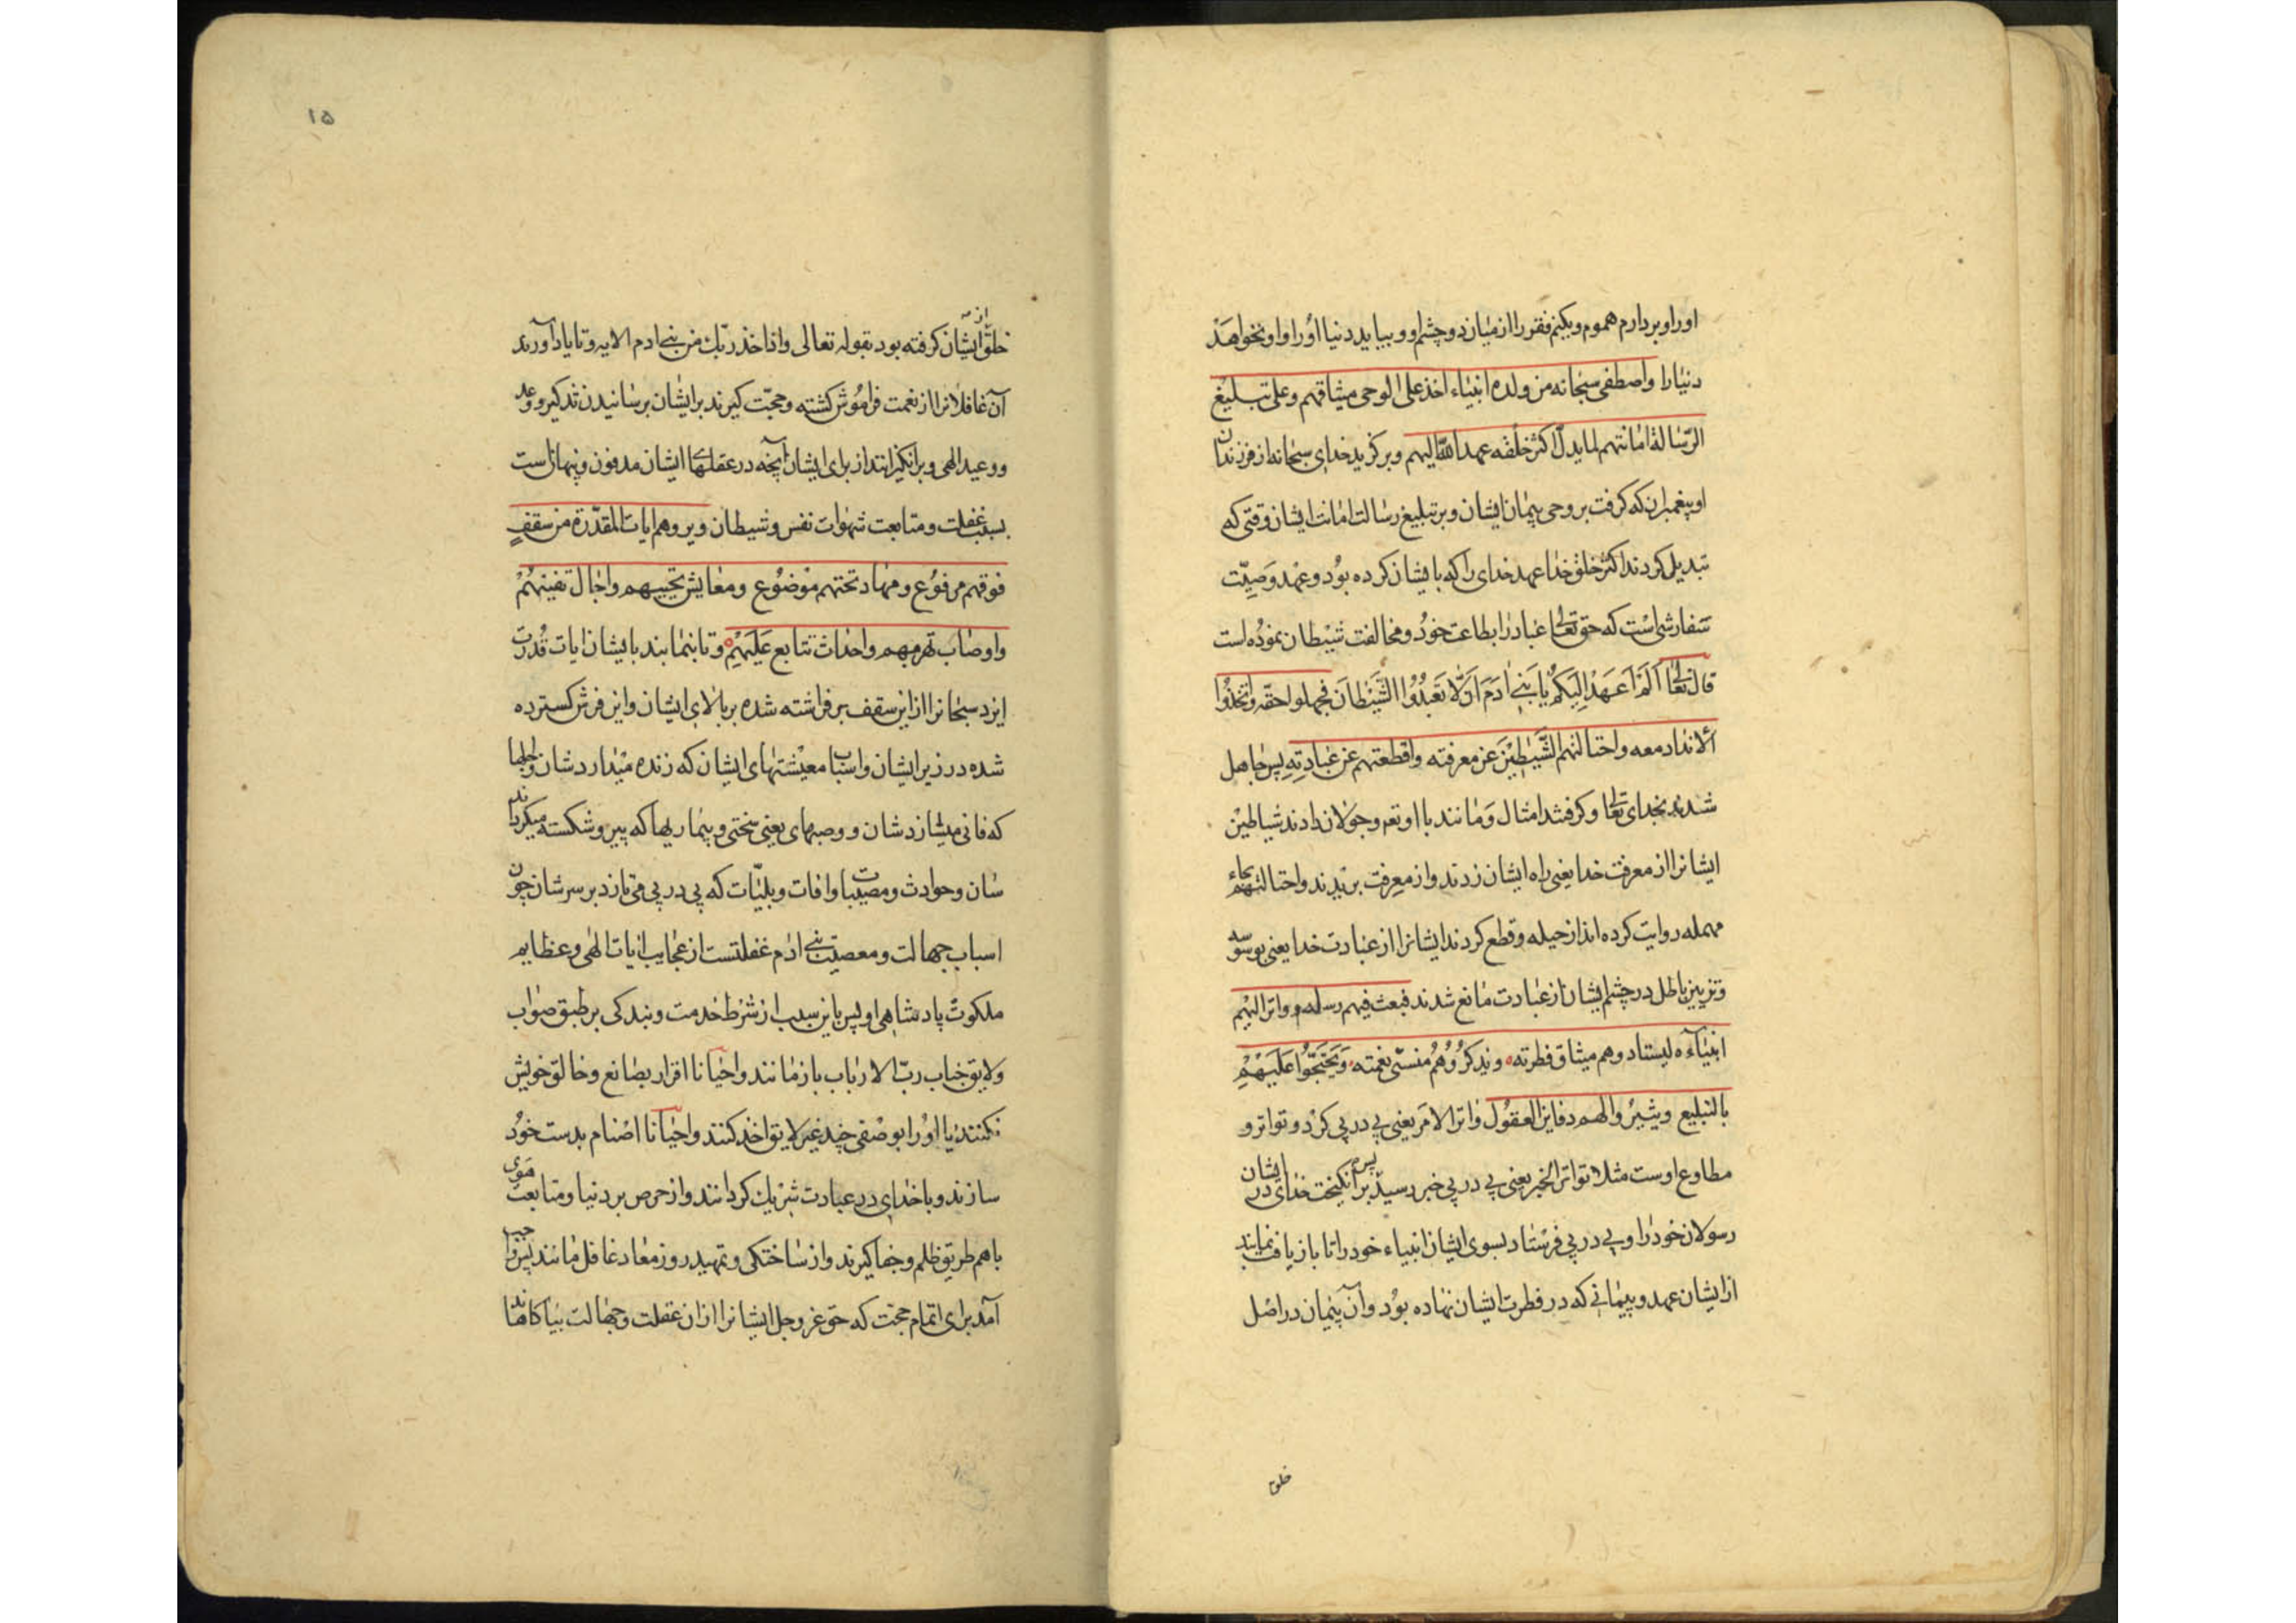 اورا و بردارم هموم و بکنم فقر را از میان دو چشم او و بیاید دنیا اورا و او نخواهد
دنیا را واصطفی سبحانه من ولده انبیاء اخذ علی الوحی میثاقهم وعلی تبلیغ
الرّسالة امانتهم لما بدل اکثر خلقه عهد اللّه الیهم و برگزید خدای سبحانه از فرزندان
او پیغمبران که گرفت بر وحی پیمان ایشان و بر تبلیغ رسالت امانت ایشان وقتی که
تبدیل کردند اکثر خلق خدا عهد خدای را که با ایشان کرده بود و عهد وصیّت
سفارشی است که حق تعالی عباد را بطاعت خود و مخالفت شیطان نموده است
قال تعالی اَلَمْ اَعْهَدْ اِلَیکُمْ یا بَنی ادَمَ اَنْ لا تَعْبُدُوا الشَّیْطانَ فجهلوا حقّه واتّخذوا
الانداد معه واحتالتهم الشَّیاطینَ عن معرفته واقطعتهم عن عبادتِهِ پس جاهل
شدند بخدای تعالی و گرفتند امثال و مانند با او تعم و جولان دادند شیاطین
ایشانرا از معرفت خدا یعنی راه ایشان زدند و از معرفت بریدند و احتالتهم بحاء
مهمله روایت کرده اند از حیله و قطع کردند ایشانرا از عبادت خدا یعنی بوسوسه
و تزیین باطل در چشم ایشان از عبادت مانع شدند فبعث فیهم رسله وواتر الیهم
انبیاءه لیستادوهم میثاق فطرته ویذکّرُوهُم منسّی نعمته وَیَحْتَجّوُا عَلَیْهِمْ
بالتبلیغ ویثیرُوا لهم دفاین العقول واتر الامر یعنی پی در پی کرد و تواتر و
مطاوع اوست مثلا تواتر الخبر یعنی پی در پی خبر رسید پس برانگیخت خدای در ایشان
رسولان خود را و پی در پی فرستاد بسوی ایشان انبیاء خود را تا بازیافت نمایند
از ایشان عهد و پیمانی که در فطرت ایشان نهاده بود و آن پیمان در اصل
خلق
۱۵
خلق از ایشان گرفته بود بقوله تعالی واذ اخذ ربّک من بنی ادم الایه و تا یاد آورند
آن غافلانرا از نعمت فراموش گشته و حجّت گیرند بر ایشان برسانیدن تذکیر و وعد
و وعید الهی و برانگیزانند از برای ایشان آنچه در عقلهای ایشان مدفون و پنهانست
بسبب غفلت و متابعت شهوات نفس و شیطان ویروهم ایات المقدّرة من سقفٍ
فوقهم مرفوع ومهاد تحتهم موضوع ومعایش تحییهم واجال تفنیهُمْ
واوصاب تهرمهم واحداث تتابع عَلَیْهِمْ و تا بنمایند بایشان ایات قدرت
ایزد سبحانرا از این سقف برافراشته شده بر بالای ایشان و این فرش گسترده
شده در زیر ایشان و اسباب معیشتهای ایشان که زنده میدارد شان و اجلها
که فانی میسازد شان و وصبهای یعنی سختی و بیماریها که پیر و شکسته میگرداند
شان و حوادث و مصیبات و افات و بلیّات که پی در پی می تازد بر سر شان چون
اسباب جهالت و معصیت بنی ادم غفلتست از عجایب ایات الهی و عظایم
ملکوت پادشاهی او پس باین سبب از شرط خدمت و بندگی بر طبق صواب
و لایق جناب ربّ الارباب باز مانند و احیانا اقرار بصانع و خالق خویش
نکنند یا اورا بوصفی چند غیر لایق اخذ کنند و احیانا اصنام بدست خود
سازند و با خدای در عبادت شریک گردانند و از حرص بر دنیا و متابعت هوی
با هم طریق ظلم و جفا گیرند و از ساختگی و تمهید روز معاد غافل مانند پس واجب
آمد برای اتمام حجت که حق عز و جل ایشانرا از ان غفلت و جهالت بیاگاهاند